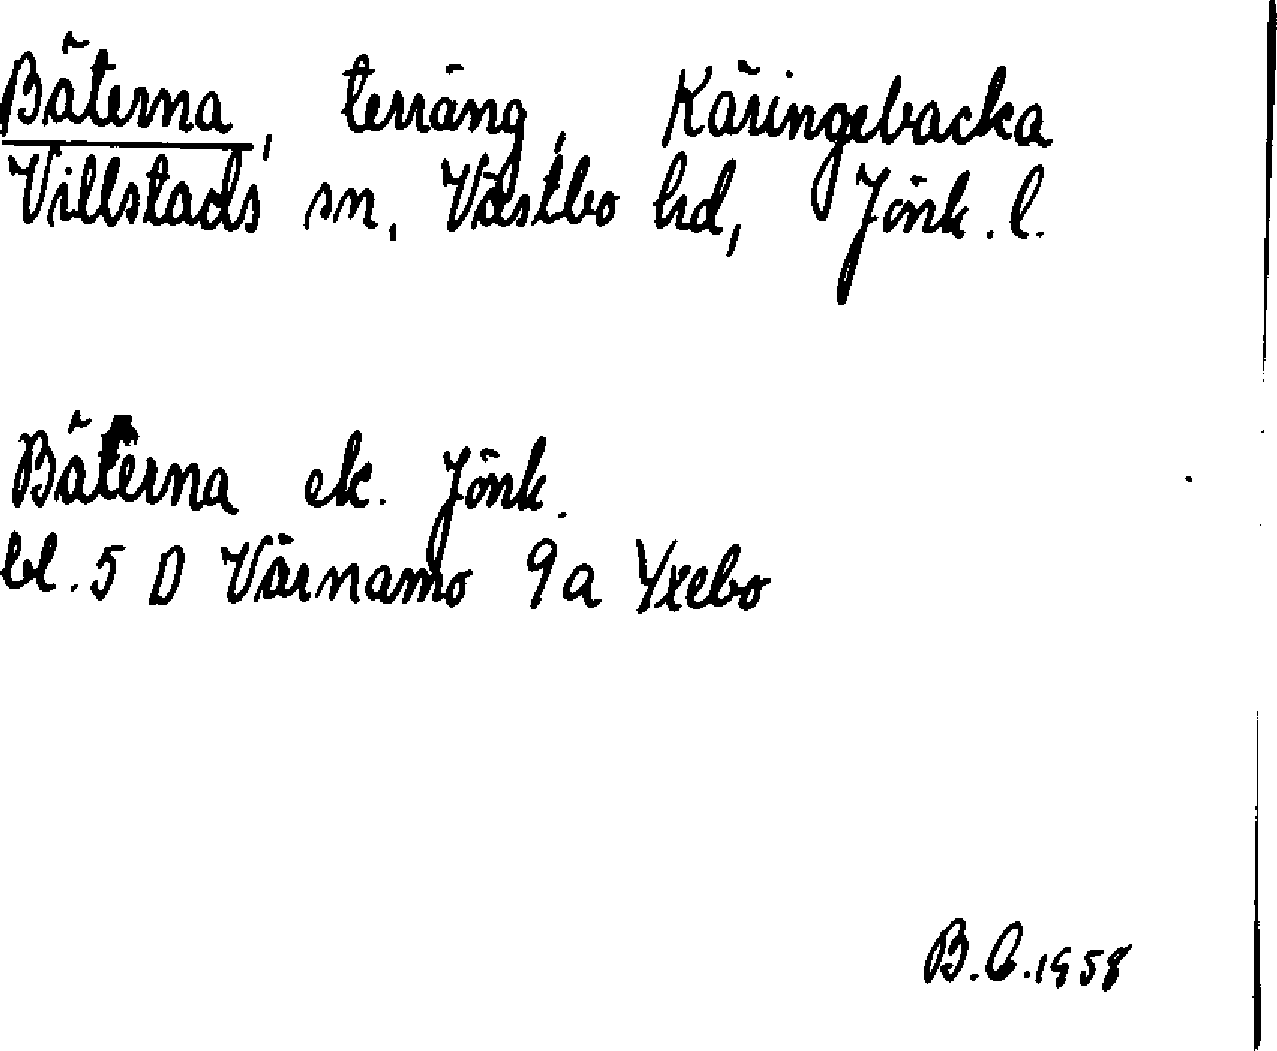 Bäterna, terräng, Käringebacka
Villstads sn, Västbo hd, Jönk. l.
Bäterna ek. Jönk.
bl. 5 D Värnamo 9a Yxebo
B.C. 1958